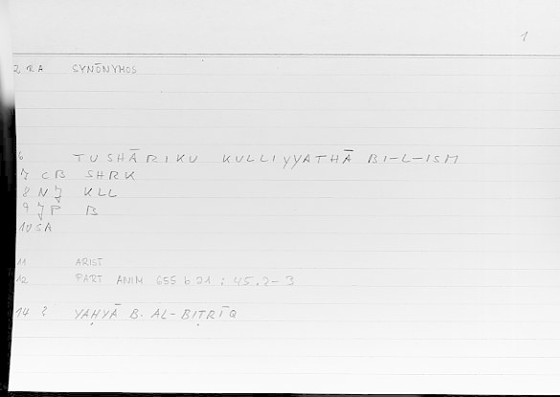 1
2 RA SYNŌNYMOS
6 TUSHĀRIKU KULLIYYATHĀ BI-L-ISM
7 CB SHRK
8 NJ KLL
9 JP B
10 SA
11 ARIST
12 PART ANIM 655 b 21 : 45.2-3
14 2 YAḤYĀ B. AL-BIṬRĪQ